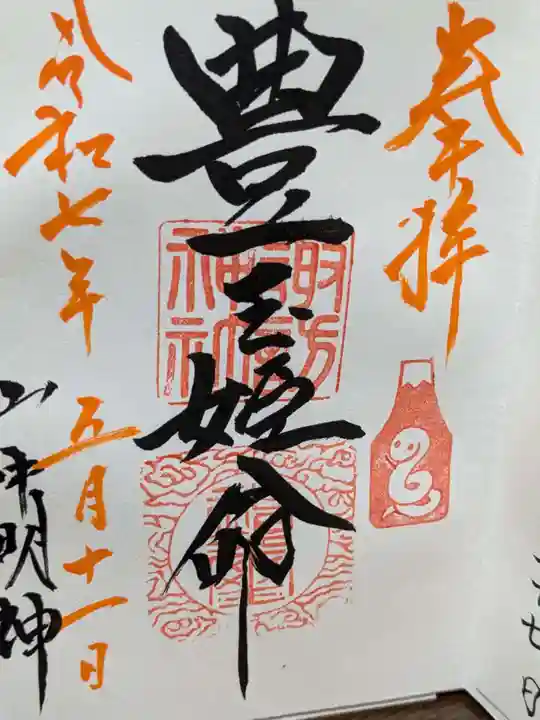 奉拝
豊玉姫命
諏訪
神社
令和七年
五月十一日
明神